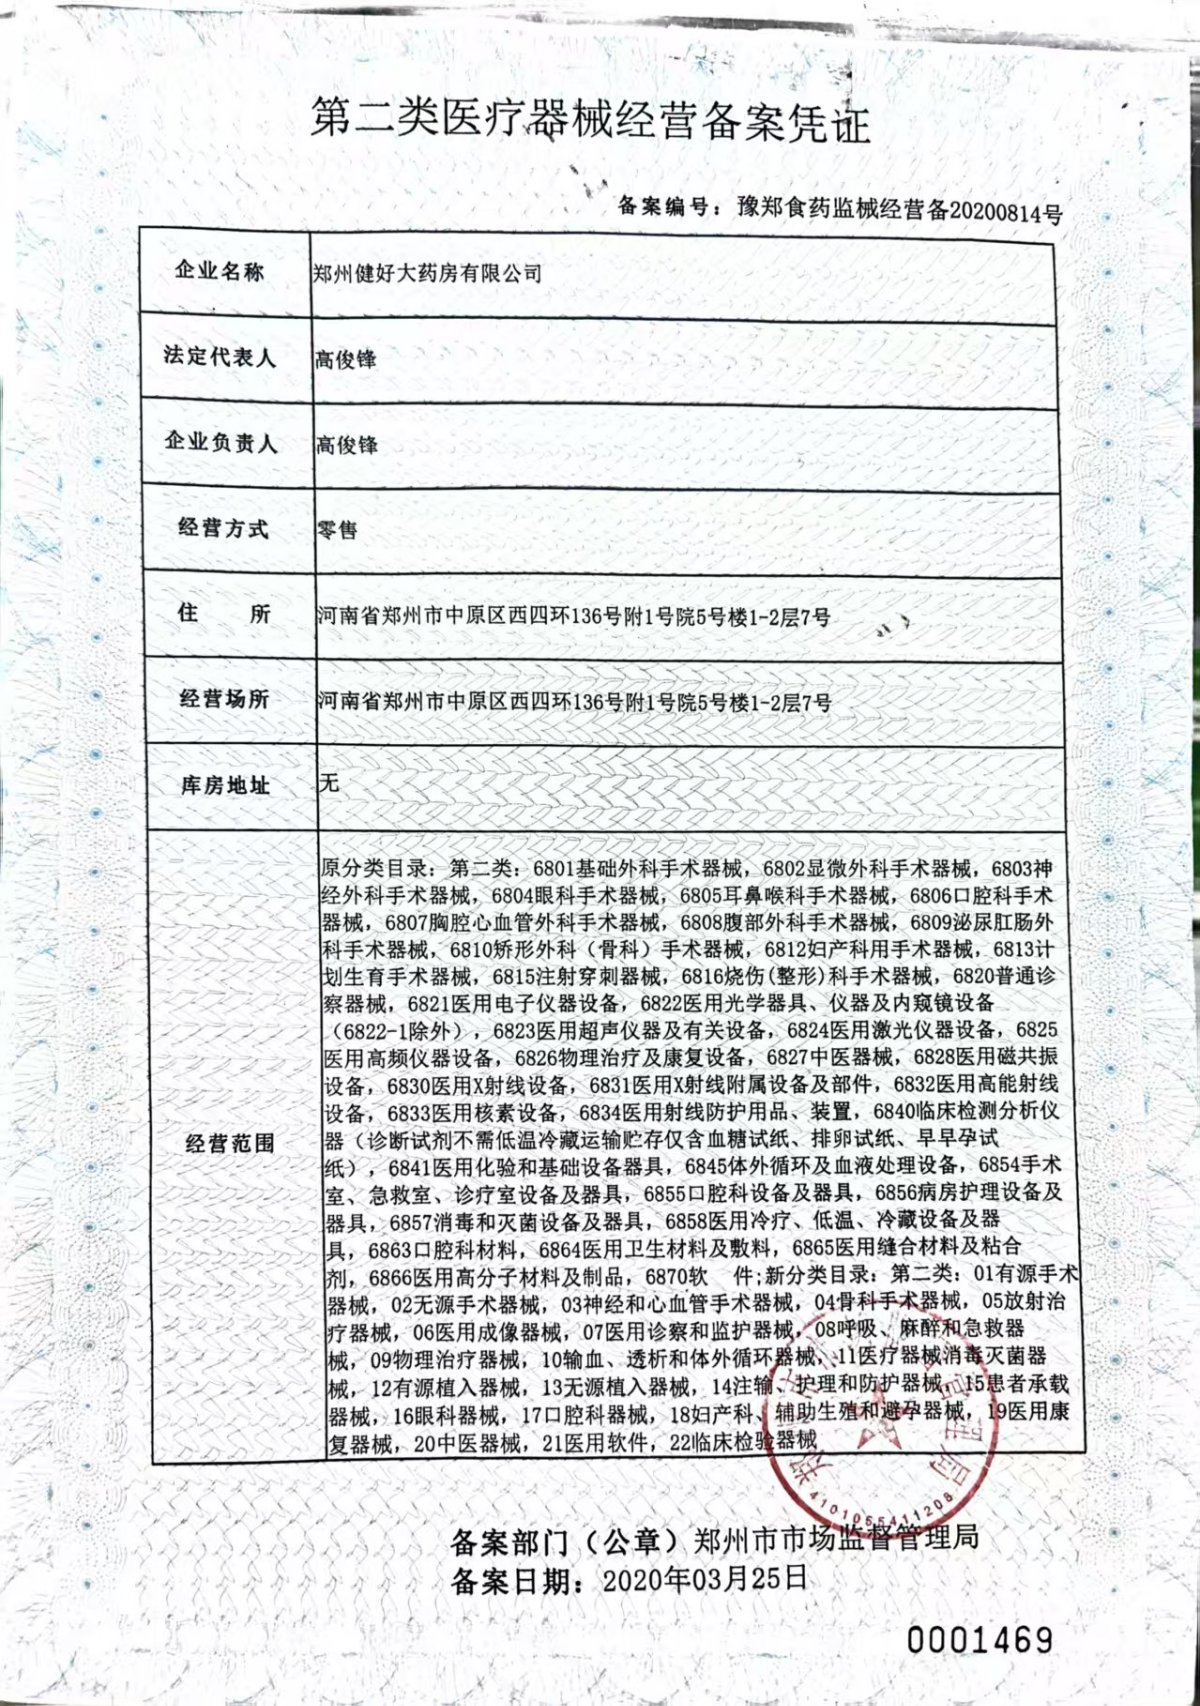 第二类医疗器械经营备案凭证
备案编号：豫郑食药监械经营备20200814号
企业名称 郑州健好大药房有限公司
法定代表人 高俊锋
企业负责人 高俊锋
经营方式 零售
住 所 河南省郑州市中原区西四环136号附1号院5号楼1-2层7号
经营场所 河南省郑州市中原区西四环136号附1号院5号楼1-2层7号
库房地址 无
经营范围
原分类目录：第二类：6801基础外科手术器械，6802显微外科手术器械，6803神
经外科手术器械，6804眼科手术器械，6805耳鼻喉科手术器械，6806口腔科手术
器械，6807胸腔心血管外科手术器械，6808腹部外科手术器械，6809泌尿肛肠外
科手术器械，6810矫形外科（骨科）手术器械，6812妇产科用手术器械，6813计
划生育手术器械，6815注射穿刺器械，6816烧伤(整形)科手术器械，6820普通诊
察器械，6821医用电子仪器设备，6822医用光学器具、仪器及内窥镜设备
（6822-1除外），6823医用超声仪器及有关设备，6824医用激光仪器设备，6825
医用高频仪器设备，6826物理治疗及康复设备，6827中医器械，6828医用磁共振
设备，6830医用X射线设备，6831医用X射线附属设备及部件，6832医用高能射线
设备，6833医用核素设备，6834医用射线防护用品、装置，6840临床检测分析仪
器（诊断试剂不需低温冷藏运输贮存仅含血糖试纸、排卵试纸、早早孕试
纸），6841医用化验和基础设备器具，6845体外循环及血液处理设备，6854手术
室、急救室、诊疗室设备及器具，6855口腔科设备及器具，6856病房护理设备及
器具，6857消毒和灭菌设备及器具，6858医用冷疗、低温、冷藏设备及器
具，6863口腔科材料，6864医用卫生材料及敷料，6865医用缝合材料及粘合
剂，6866医用高分子材料及制品，6870软 件;新分类目录：第二类：01有源手术
器械，02无源手术器械，03神经和心血管手术器械，04骨科手术器械，05放射治
疗器械，06医用成像器械，07医用诊察和监护器械，08呼吸、麻醉和急救器
械，09物理治疗器械，10输血、透析和体外循环器械，11医疗器械消毒灭菌器
械，12有源植入器械，13无源植入器械，14注输、护理和防护器械，15患者承载
器械，16眼科器械，17口腔科器械，18妇产科、辅助生殖和避孕器械，19医用康
复器械，20中医器械，21医用软件，22临床检验器械
4101065411208
备案部门（公章）郑州市市场监督管理局
备案日期：2020年03月25日
0001469